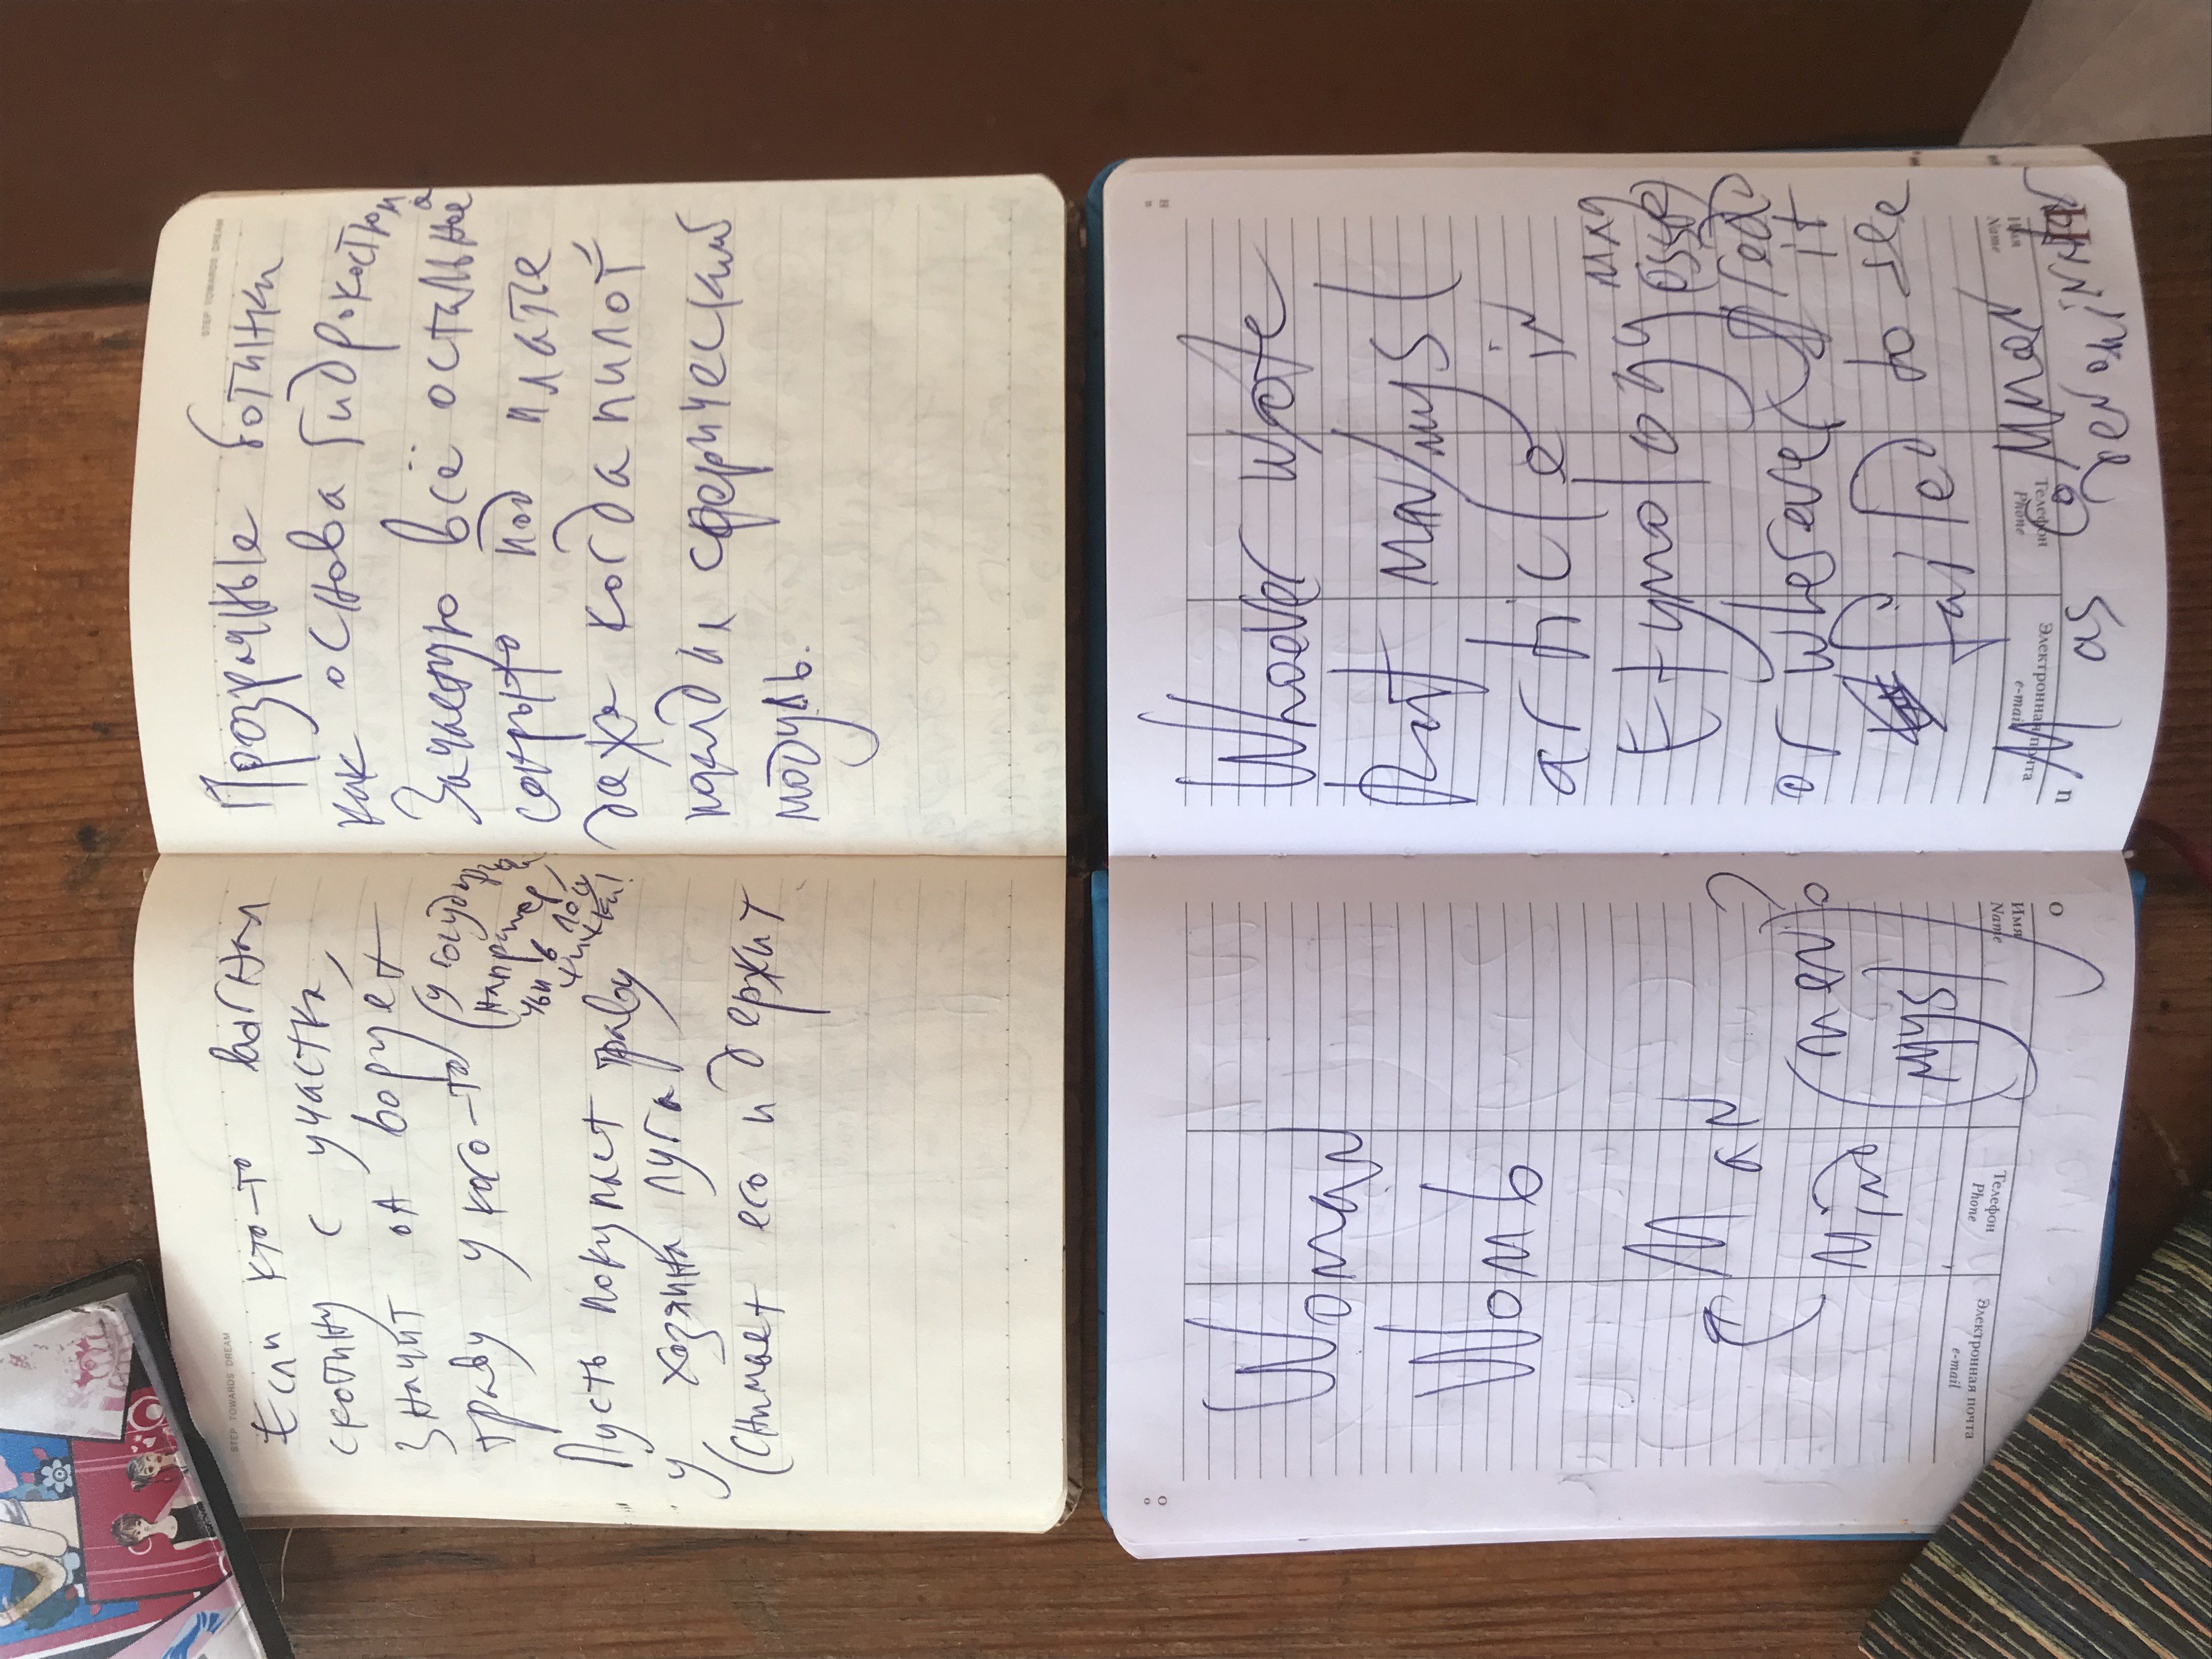 STEP TOWARDS DREAM
Если кто-то выгнал
скотину с участка,
значит он ворует
траву у кого-то
(у государства
например,
чьи в лесу
Пусть покупает траву
у хозяина луга
(снимает его и держит
STEP TOWARDS DREAM
Прозрачные ботинки
как основа гидрокостюма
Зачастую всё остальное
сокрыто под платье
даже когда пилот
сферический
модуль.
Woman
Womb
Man
Mind
(men?
mysl)
Электронная почта
e-mail
Телефон
Phone
Имя
Name
О
Whoever wrote
that man/mysl
article in
Etymology
or wherever I read
it
failed to see
M as common
denominator
Электронная почта
e-mail
Телефон
Phone
Имя
Name
П